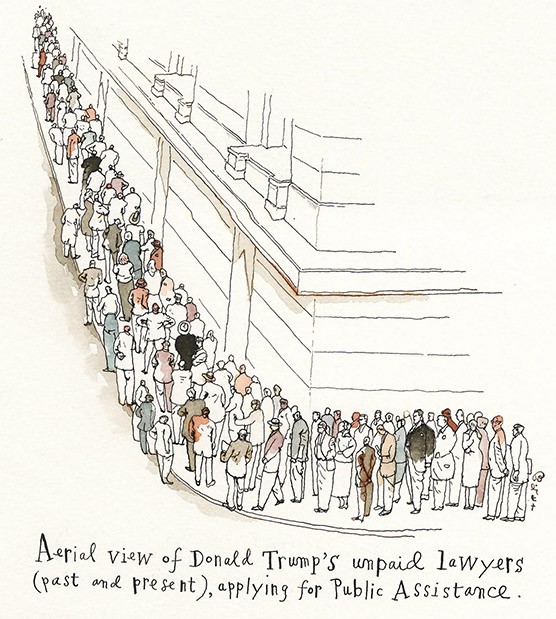 Aerial view of Donald Trump's unpaid lawyers
(past and present), applying for Public Assistance.